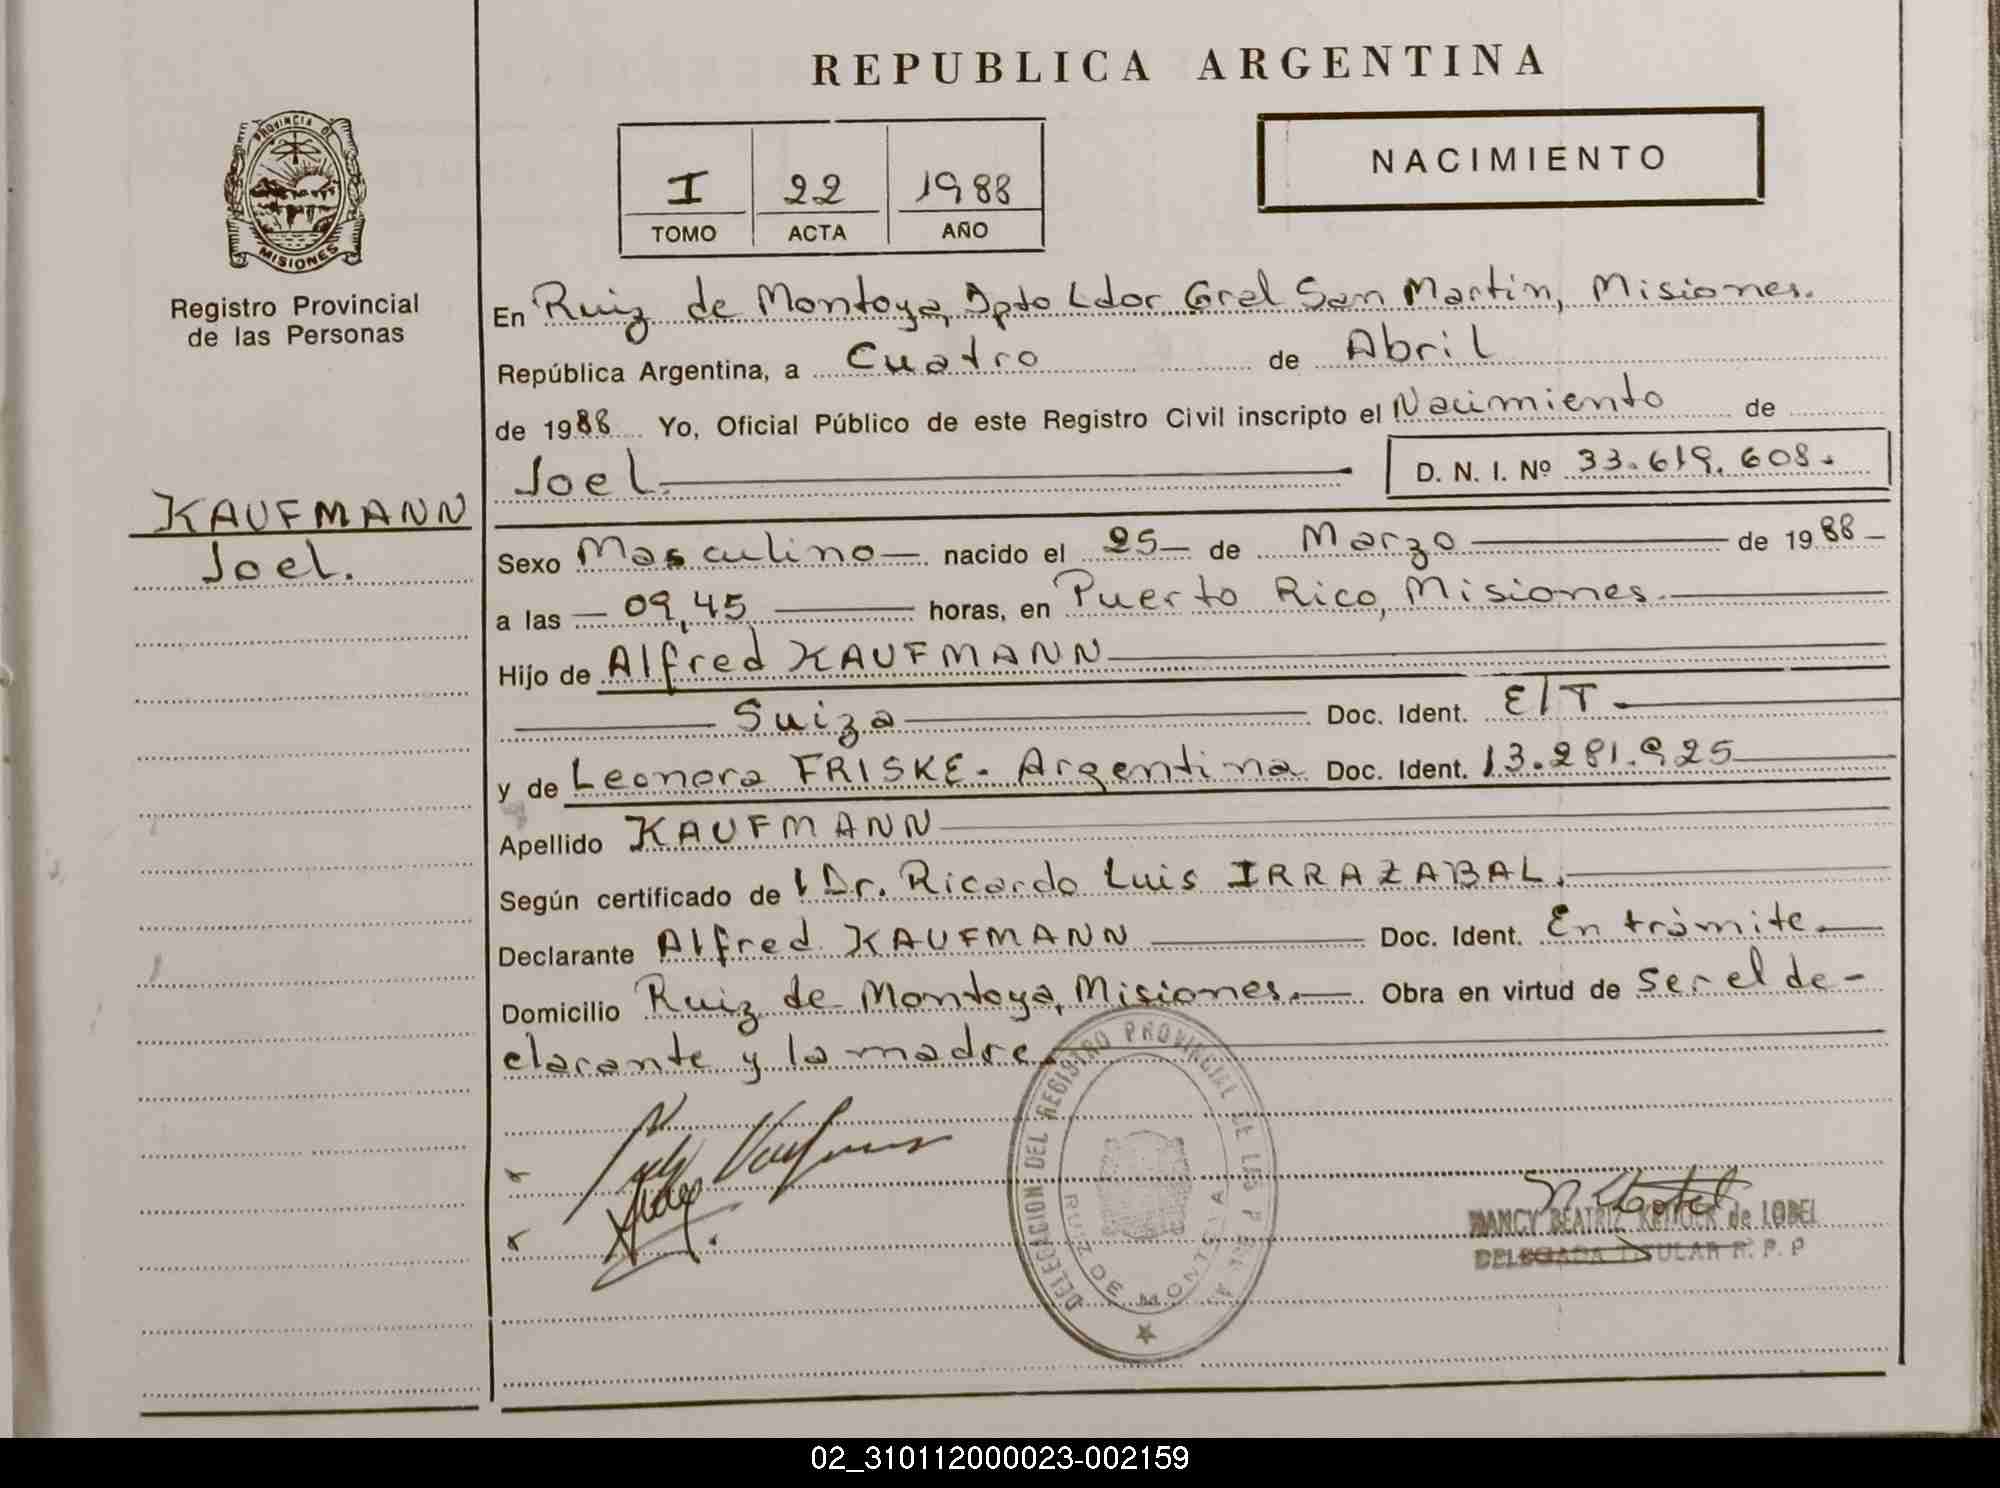 REPUBLICA ARGENTINA
PROVINCIA DE
MISIONES
Registro Provincial
de las Personas
I 22 1988
TOMO ACTA AÑO
NACIMIENTO
En Ruiz de Montoya, Dpto Ldor Gral San Martin, Misiones.
República Argentina, a Cuatro de Abril
de 1988 Yo, Oficial Público de este Registro Civil inscripto el Nacimiento de
Joel. D. N. I. Nº 33.619.608.
KAUFMANN
Joel.
Sexo Masculino nacido el 25 de Marzo de 1988
a las 09,45 horas, en Puerto Rico, Misiones
Hijo de Alfred KAUFMANN
Suiza Doc. Ident. E/T
y de Leonora FRISKE. Argentina Doc. Ident. 13.281.925
Apellido KAUFMANN
Según certificado de l Dr. Ricardo Luis IRRAZABAL.
Declarante Alfred KAUFMANN Doc. Ident. En trámite.
Domicilio Ruiz de Montoya, Misiones. Obra en virtud de ser el de-
clarante y la madre.
DELEGACION DEL REGISTRO PROVINCIAL DE LAS P
RUIZ DE MONTOYA
NANCY BEATRIZ de LOBEL
DELEGADA TITULAR R. P. P
02_310112000023-002159